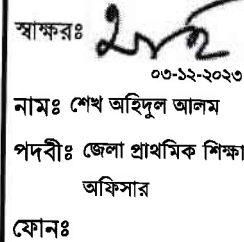 স্বাক্ষরঃ
০৩-১২-২০২৩
নামঃ শেখ অহিদুল আলম
পদবীঃ জেলা প্রাথমিক শিক্ষা
অফিসার
ফোনঃ